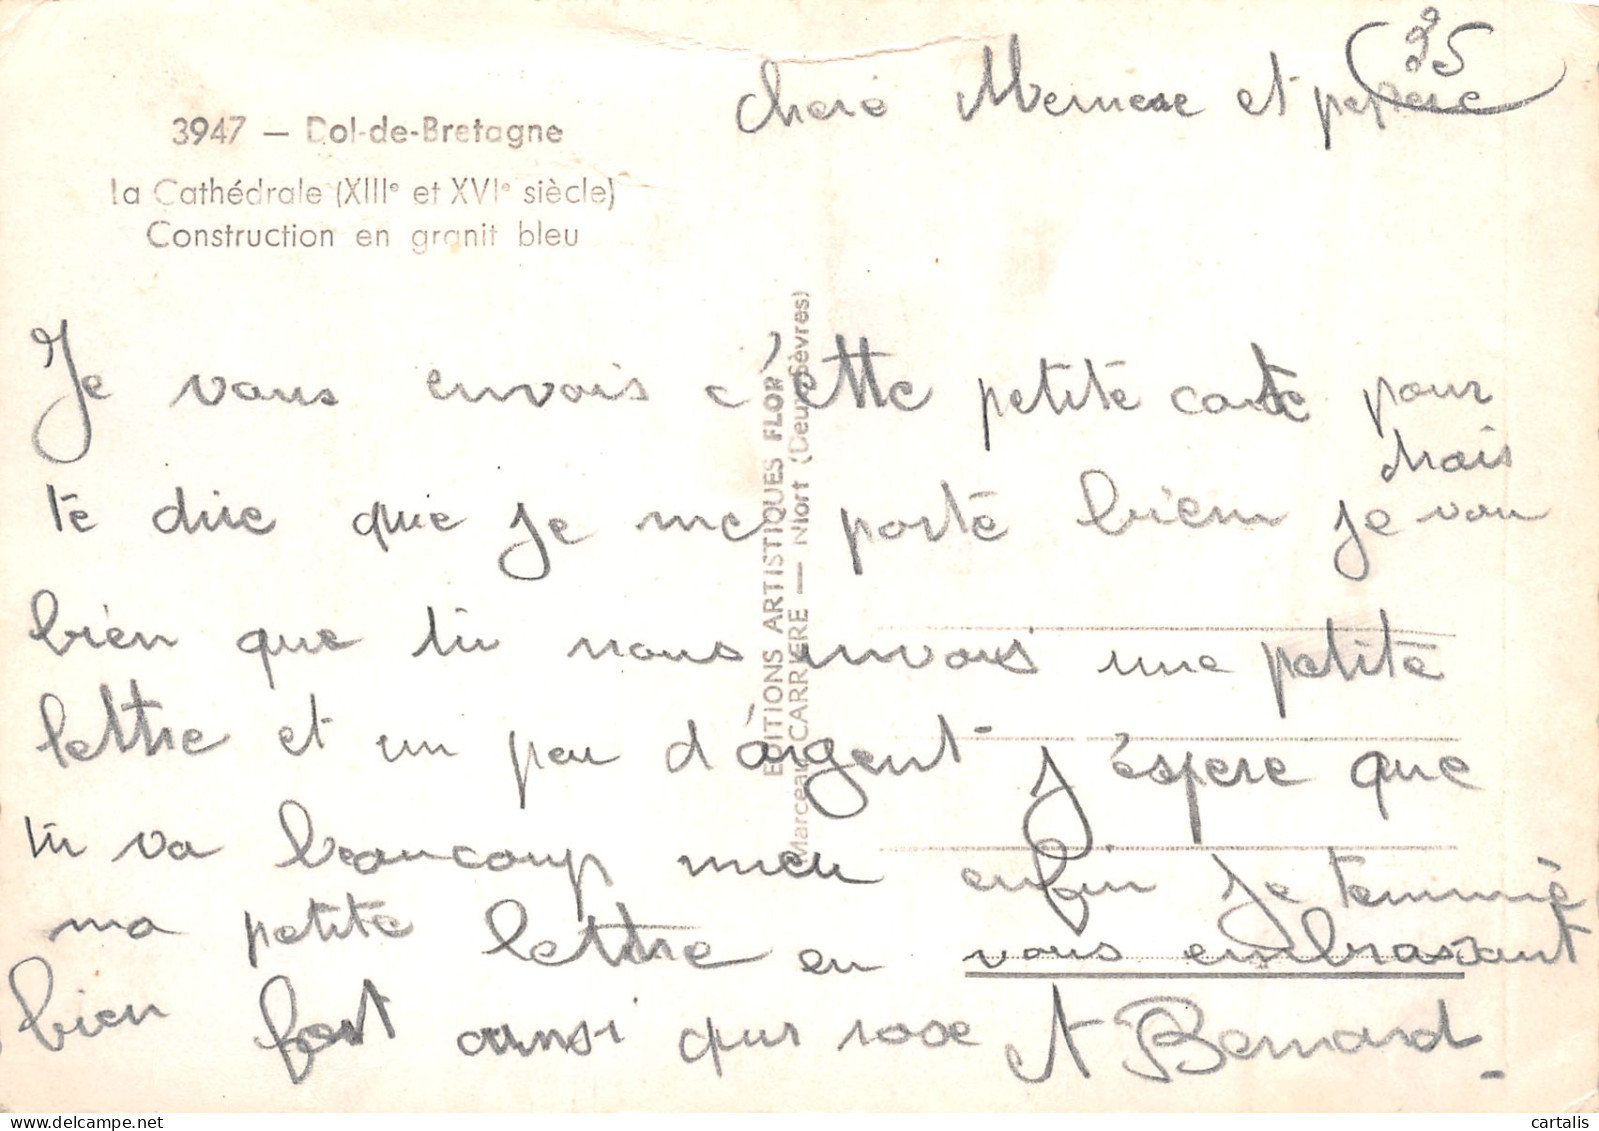 35
chere Memere et pepere
3947 — Dol-de-Bretagne
La Cathédrale (XIIIe et XVIe siècle)
Construction en granit bleu
EDITIONS ARTISTIQUES FLOR
Marceau CARRIERE — Niort (Deux-Sèvres)
Je vous envois c'ette petite carte pour
te dire que je me porte bien mais je vou
bien que tu nous envois une petite
lettre et un peu d'argent j'éspere que
tu va beaucoup mieu enfin je terminé
ma petite lettre en vous embrassant
bien fort ainsi que rose et Bernard
cartalis